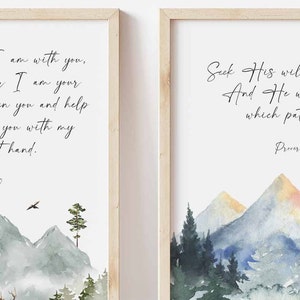 I am with you,
I am your
you and help
you with my
hand.
Seek His wil
And He w
which pat
Prover